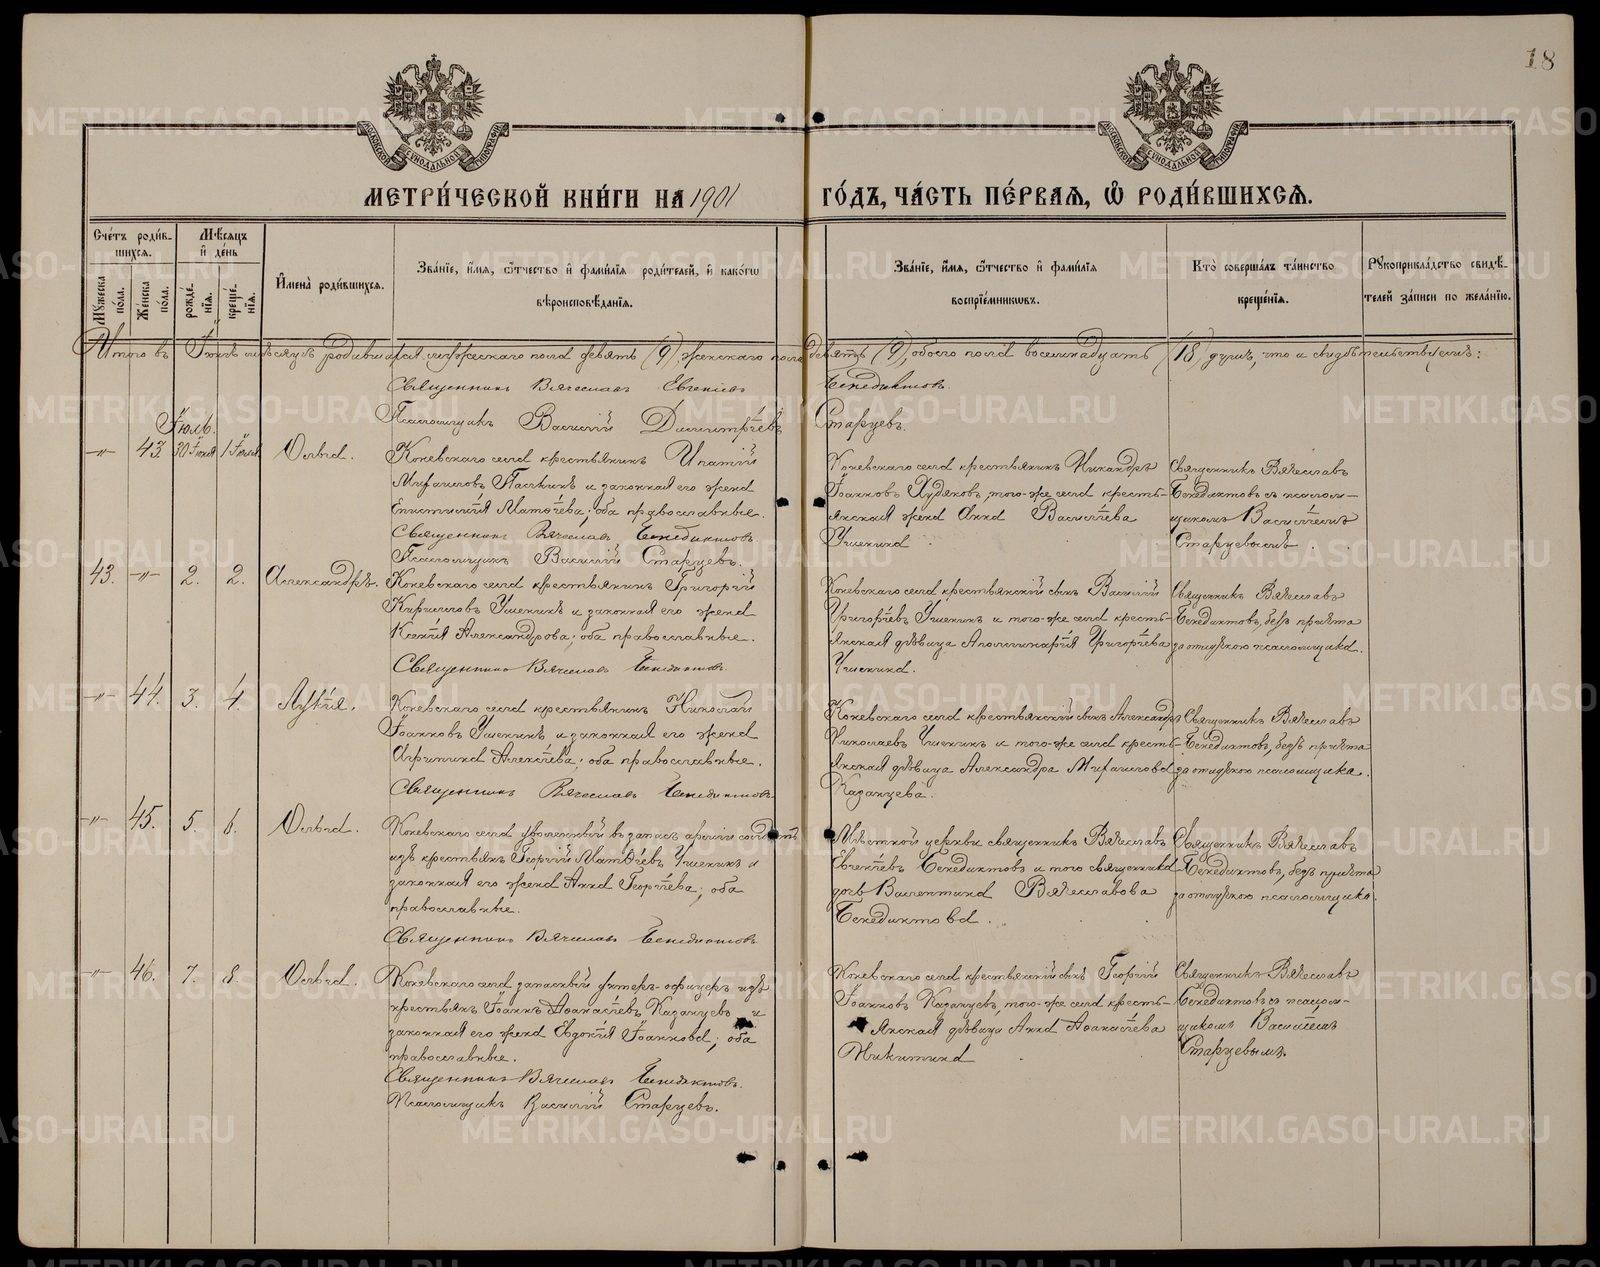 18
МЕТРИ́ЧЕСКОЙ КНИ́ГИ НА 1901 ГО́ДЪ, ЧА́СТЬ ПЕ́РВАЯ, Ѽ РОДИ́ВШИХСЯ.
Сче́тъ роди́в-
шихся.
Мꙋ́жеска по́ла.
Же́нска по́ла.
Мѣ́сяцъ и де́нь
рожде́-
нїя.
креще́-
нїя.
И́мена роди́вшихся.
Зва́нїе, и́мя, ѻ́тчество и фами́лїя роди́телей, и како́гѡ
вѣроисповѣ́данїя.
Зва́нїе, и́мя, ѻ́тчество и фами́лїя
воспрїе́мниковъ.
Кто̀ соверша́лъ та́инство
креще́нїя.
Рꙋкоприкла́дство свидѣ́-
телей за́писи по жела́нїю.
Итого въ Іюнѣ мѣсяцѣ родившихся мужескаго пола девять (9), женскаго пола девять (9), обоего пола восемнадцать (18) душъ, что и свидѣтельствуемъ:
Священникъ Вячеславъ Евгеніевъ Бенедиктовъ.
Псаломщикъ Василій Димитріевъ Старцевъ.
Іюль.
-"- 43. 30 Іюня 1 Іюля Ольга.
Коневскаго села крестьянинъ Ипатій
Михаиловъ Пашкинъ и законная его жена
Епистимія Матѳіева; оба православные.
Священникъ Вячеславъ Бенедиктовъ.
Псаломщикъ Василій Старцевъ.
Коневскаго села крестьянинъ Никандръ
Іоанновъ Худяковъ, того-же села кресть-
янская жена Анна Васильева
Ушенина
Священникъ Вячеславъ
Бенедиктовъ съ псалом-
щикомъ Василіемъ
Старцевымъ.
43. -"- 2. 2. Александръ.
Коневскаго села крестьянинъ Григорій
Кириловъ Ушенинъ и законная его жена
Ксенія Александрова; оба православные.
Священникъ Вячеславъ Бенедиктовъ.
Коневскаго села крестьянскій сынъ Василій
Григоріевъ Ушенинъ и того-же села кресть-
янская дѣвица Аполлинарія Григоріева
Ушенина.
Священникъ Вячеславъ
Бенедиктовъ, безъ причта
за отлучкою псаломщика.
-"- 44. 3. 4. Лукія.
Коневскаго села крестьянинъ Николай
Іоанновъ Ушенинъ и законная его жена
Агрипина Алексіева; оба православные.
Священникъ Вячеславъ Бенедиктовъ
Коневскаго села крестьянскій сынъ Александръ
Николаевъ Ушенинъ и того-же села кресть-
янская дѣвица Александра Михаилова
Казанцева.
Священникъ Вячеславъ
Бенедиктовъ, безъ причта
за отлучкою псаломщика.
-"- 45. 5. 6. Ольга.
Коневскаго села уволенный въ запасъ арміи солдатъ
изъ крестьянъ Георгій Матѳіевъ Ушенинъ и
законная его жена Анна Георгіева; оба
православные.
Священникъ Вячеславъ Бенедиктовъ
Мѣстной церкви священникъ Вячеславъ
Евгеніевъ Бенедиктовъ и того священника
дочь Валентина Вячеславова
Бенедиктова.
Священникъ Вячеславъ
Бенедиктовъ, безъ причта
за отлучкою псаломщика.
-"- 46. 7. 8. Ольга.
Коневскаго села запасный унтеръ-офицеръ изъ
крестьянъ Іоаннъ Аѳанасіевъ Казанцевъ и
законная его жена Евдокія Іоаннова; оба
православные.
Священникъ Вячеславъ Бенедиктовъ.
Псаломщикъ Василій Старцевъ.
Коневскаго села крестьянскій сынъ Георгій
Іоанновъ Казанцевъ, того-же села кресть-
янская дѣвица Анна Аѳанасіева
Никитина
Священникъ Вячеславъ
Бенедиктовъ съ псалом-
щикомъ Василіемъ
Старцевымъ.